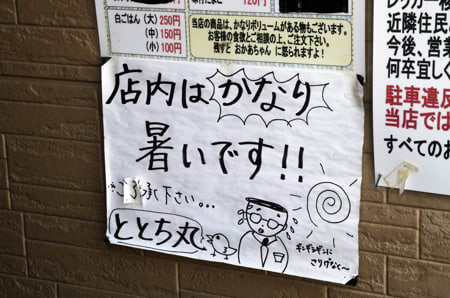 白ごはん(大)250円
(中)150円
(小)100円
120円
当店の商品は、かなりボリュームがある物もございます。
お客様の食欲とご相談の上、ご注文下さい。
残すと おかあちゃんに 怒られますよ!
近隣住民
今後、営業
何卒宜しく
駐車違反
当店では
すべてのお
店内は かなり
暑いです!!
ご了承下さい。。。
ととち丸
ギンギンギンに
さりげなく〜